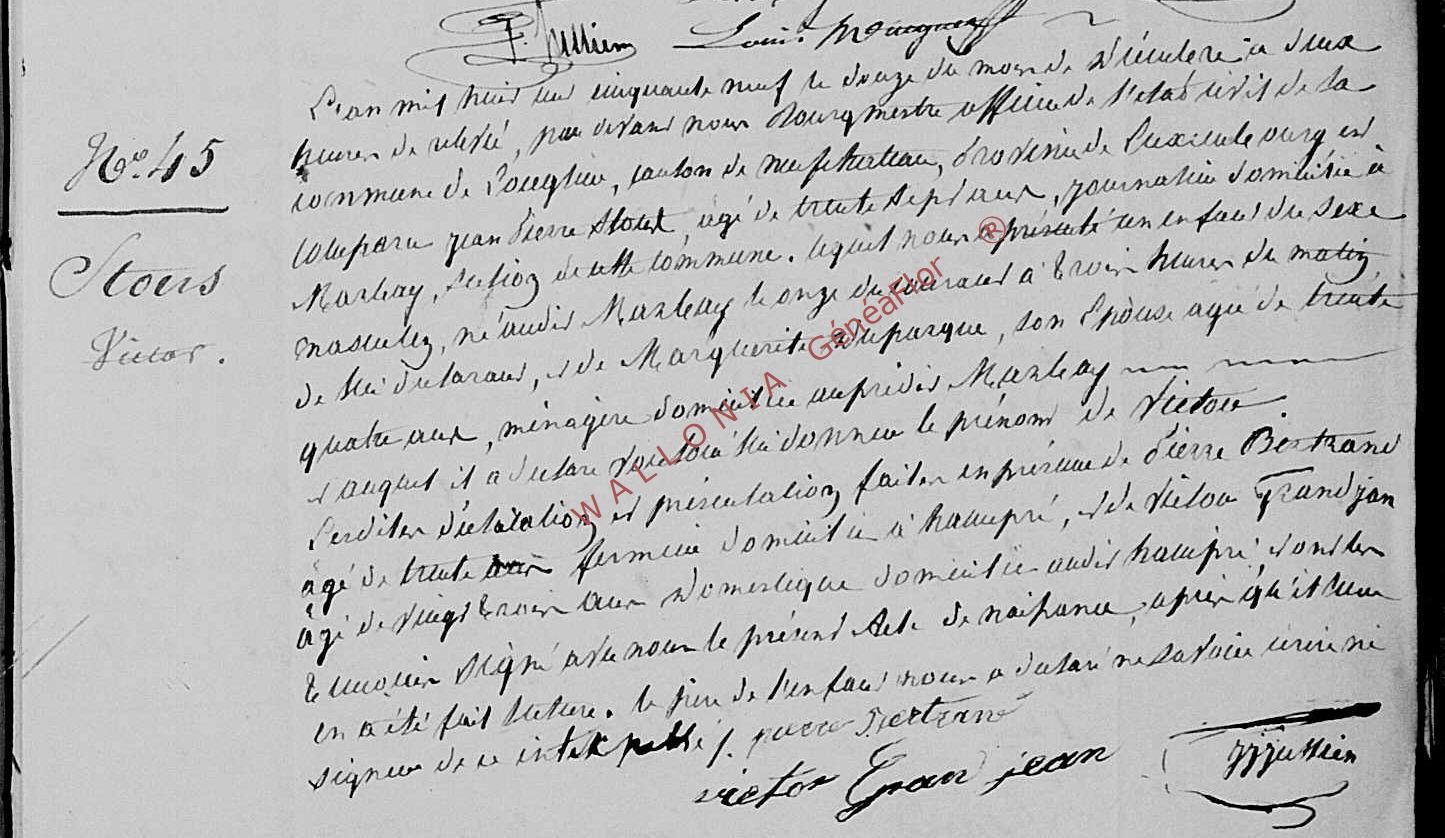 Louis
L'an mil huit cent cinquante neuf le douze du mois de Décembre à deux
heures de relevé, par devant nous Bourgmestre officier de l'etat civil de la
commune de Longlier, canton de neufchateau, province de Luxembourg est
N° 45
comparu jean Pierre Stous, agé de trente sept ans, journalier domicilié à
Stous
Marbay, section de cette commune. lequel nous a présenté un enfant du sexe
Victor.
masculin, né audit Marbay le onze du courant à trois heures du matin
de lui déclarant, et de Marguerite Duparque, son Epouse agée de trente
quatre ans, ménagère domiciliée au prédit Marbay
et auquel il a déclaré vouloir lui donner le prénom de Victor.
Lesdites déclaration et présentation faites en présence de Pierre Bertrand
âgé de trente ans fermier domicilié à hamipré, et de Victor Grandjan
âgé de vingt trois ans Domestique domicilié audit hamipré et ont les
témoins signé avec nous le présent Acte de naissance, après qu'il leur
en a été fait lecture. le père de l'enfant nous a déclaré ne savoir écrire ni
signer de ce pierre Bertrand
victor Gran jean
WALLONIA GénéaFlor ®